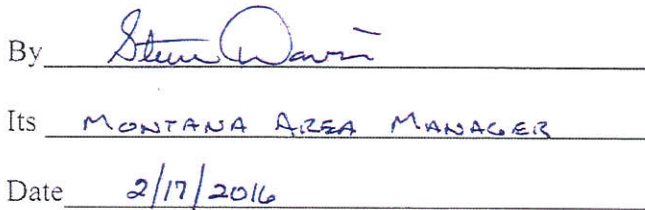 By Steve Davis
Its MONTANA AREA MANAGER
Date 2/17/2016